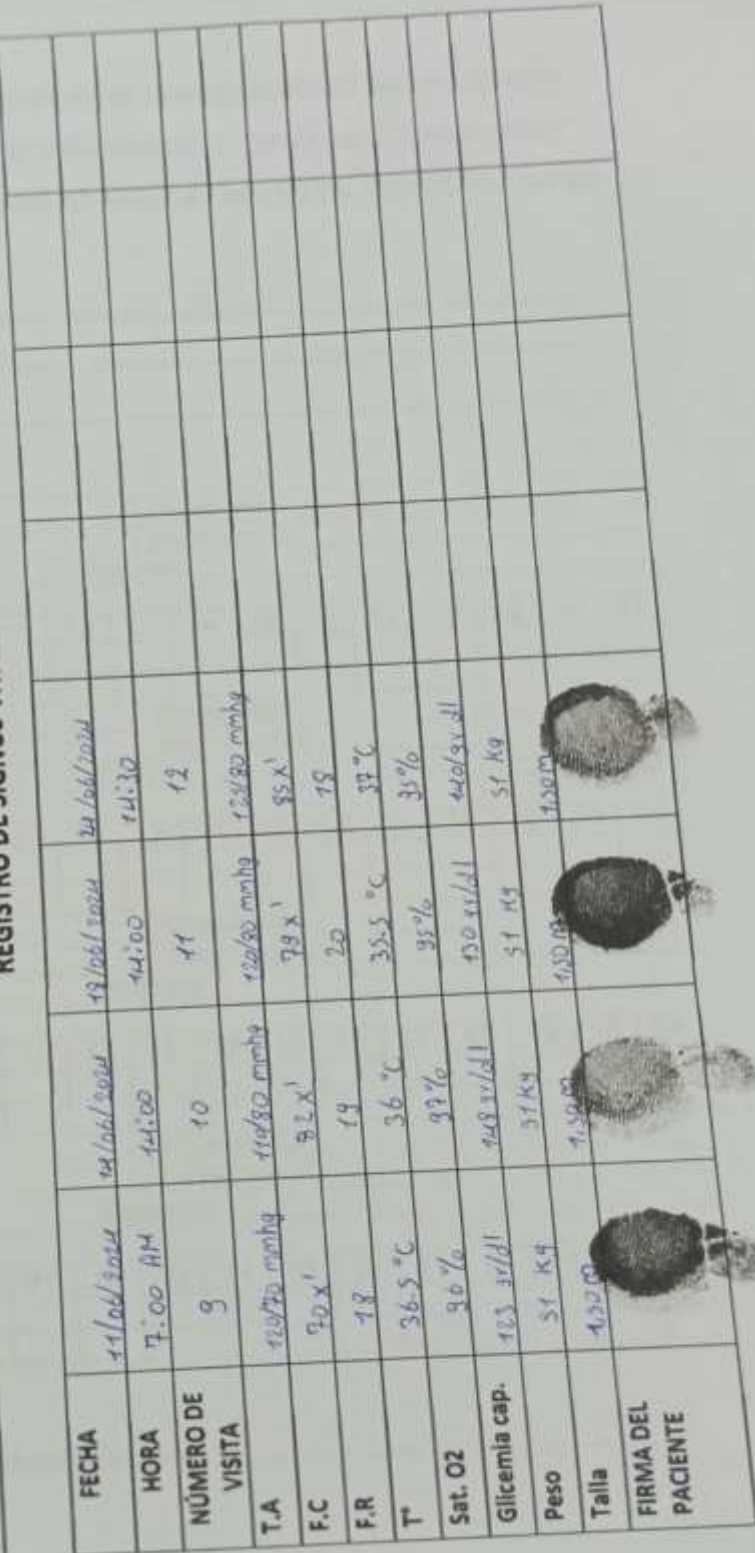 REGISTRO DE SIGNOS
FECHA 11/06/2024 14/06/2024 19/06/2024 21/06/2024
HORA 7:00 AM 14:00 14:00 14:30
NÚMERO DE VISITA 9 10 11 12
T.A 120/70 mmhg 110/80 mmhg 120/80 mmhg mmhg
F.C 70 x' 82 x' 79 x' 85 x'
F.R 18 19 20 18
T° 36.5 °C 36 °C 35.5 °C 37 °C
Sat. O2 96% 97% 95% 95%
Glicemia cap. 125 gr/dl 148 gr/dl 130 gr/dl 140 gr/dl
Peso 51 Kg 51 Kg 51 Kg 51 Kg
Talla 1,50 m 1,50 m 1,50 m 1,50 m
FIRMA DEL PACIENTE